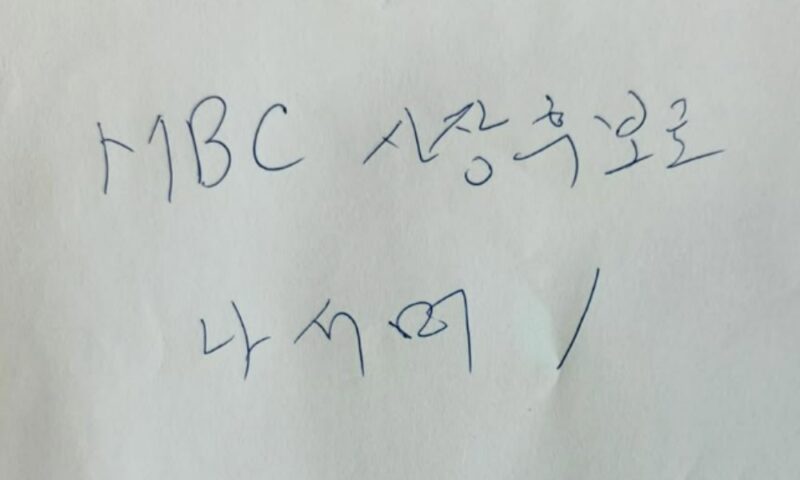 MBC 시장후보로
나서며 /